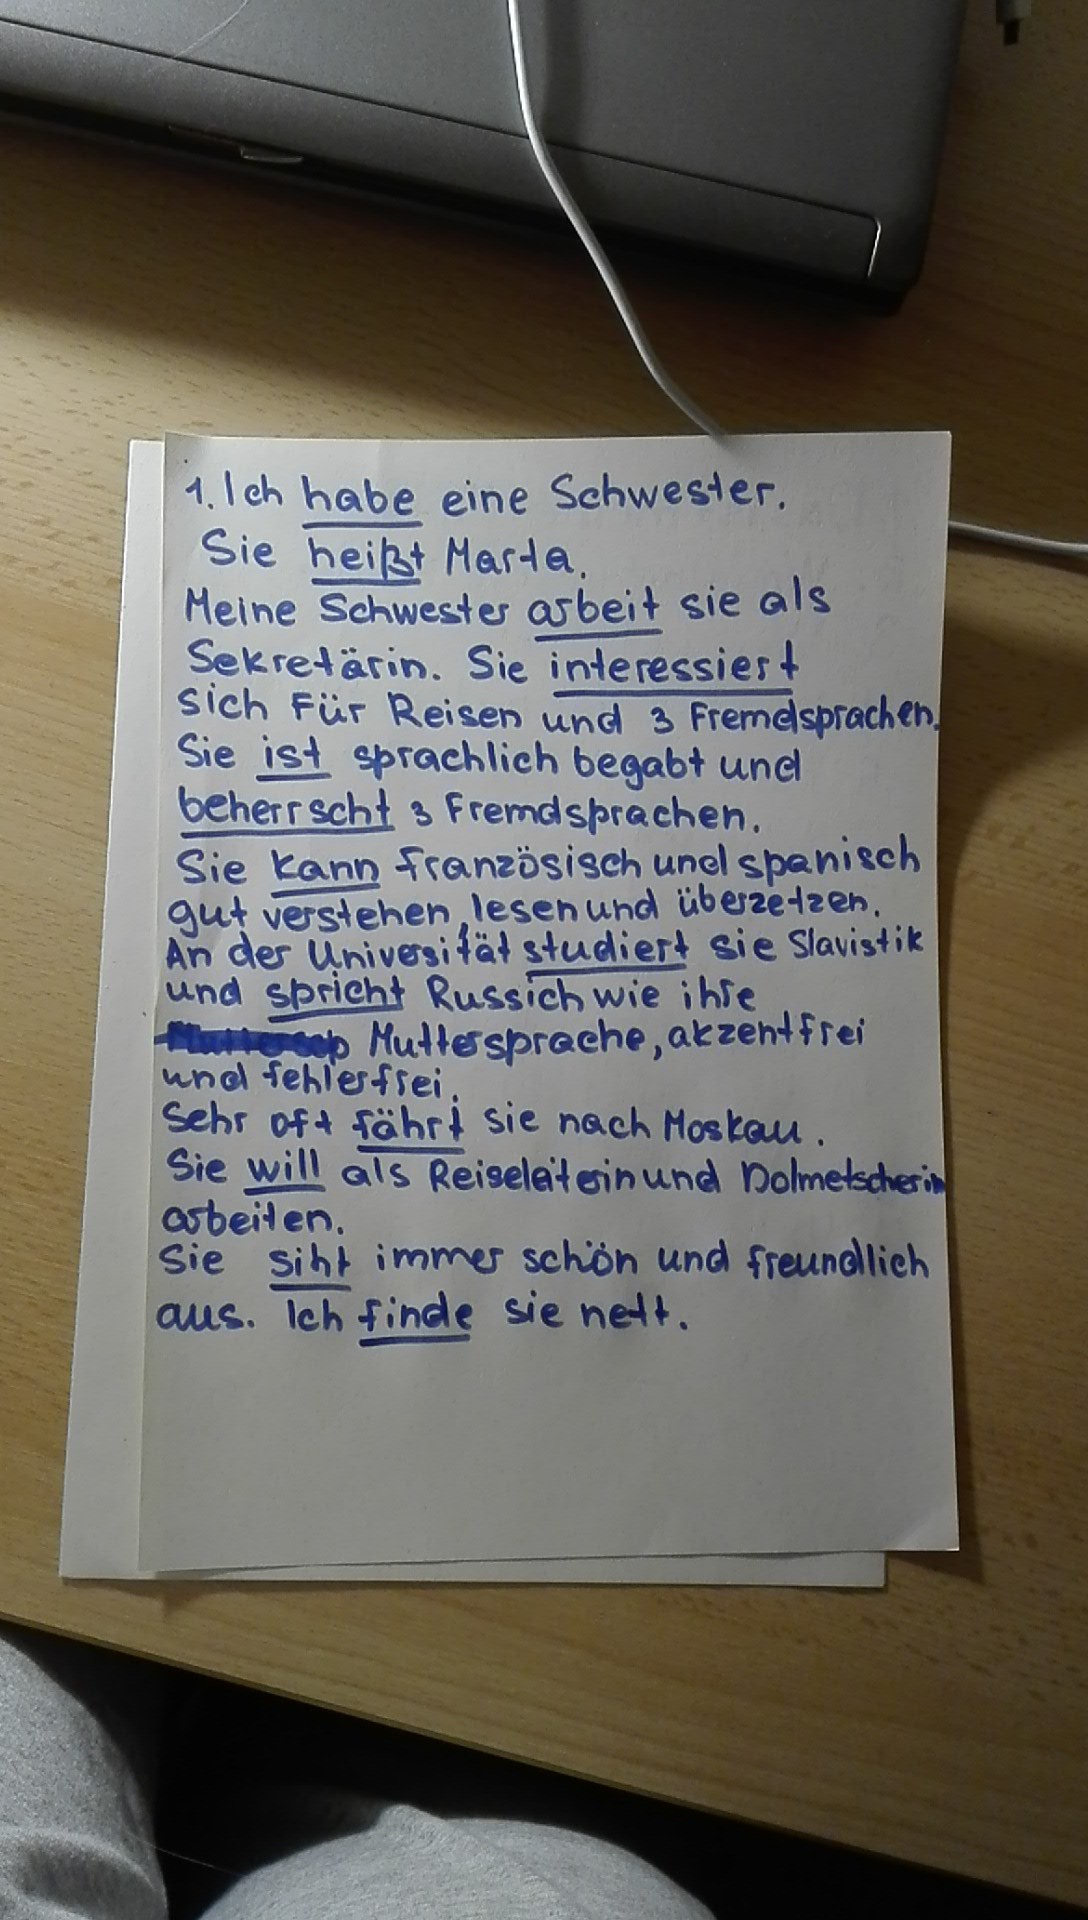 1. Ich habe eine Schwester.
Sie heißt Marta.
Meine Schwester arbeit sie als
Sekretärin. Sie interessiert
sich für Reisen und 3 Fremdsprachen.
Sie ist sprachlich begabt und
beherrscht 3 Fremdsprachen.
Sie kann französisch und spanisch
gut verstehen, lesen und überzetzen.
An der Universität studiert sie Slavistik
und spricht Russich wie ihre
Muttersprache, akzentfrei
und fehlerfrei.
Sehr oft fährt sie nach Moskau.
Sie will als Reiseleiterin und Dolmetscherin
arbeiten.
Sie siht immer schön und freundlich
aus. Ich finde sie nett.